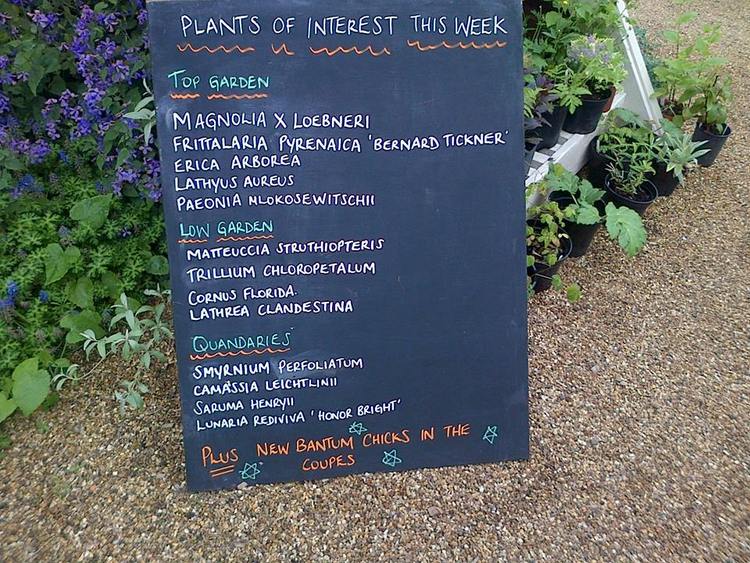 PLANTS OF INTEREST THIS WEEK
TOP GARDEN
MAGNOLIA X LOEBNERI
FRITTALARIA PYRENAICA 'BERNARD TICKNER'
ERICA ARBOREA
LATHYUS AUREUS
PAEONIA MLOKOSEWITSCHII
LOW GARDEN
MATTEUCCIA STRUTHIOPTERIS
TRILLIUM CHLOROPETALUM
CORNUS FLORIDA.
LATHREA CLANDESTINA
QUANDARIES
SMYRNIUM PERFOLIATUM
CAMASSIA LEICHTLINII
SARUMA HENRYII
LUNARIA REDIVIVA 'HONOR BRIGHT'
PLUS NEW BANTUM CHICKS IN THE
COUPES